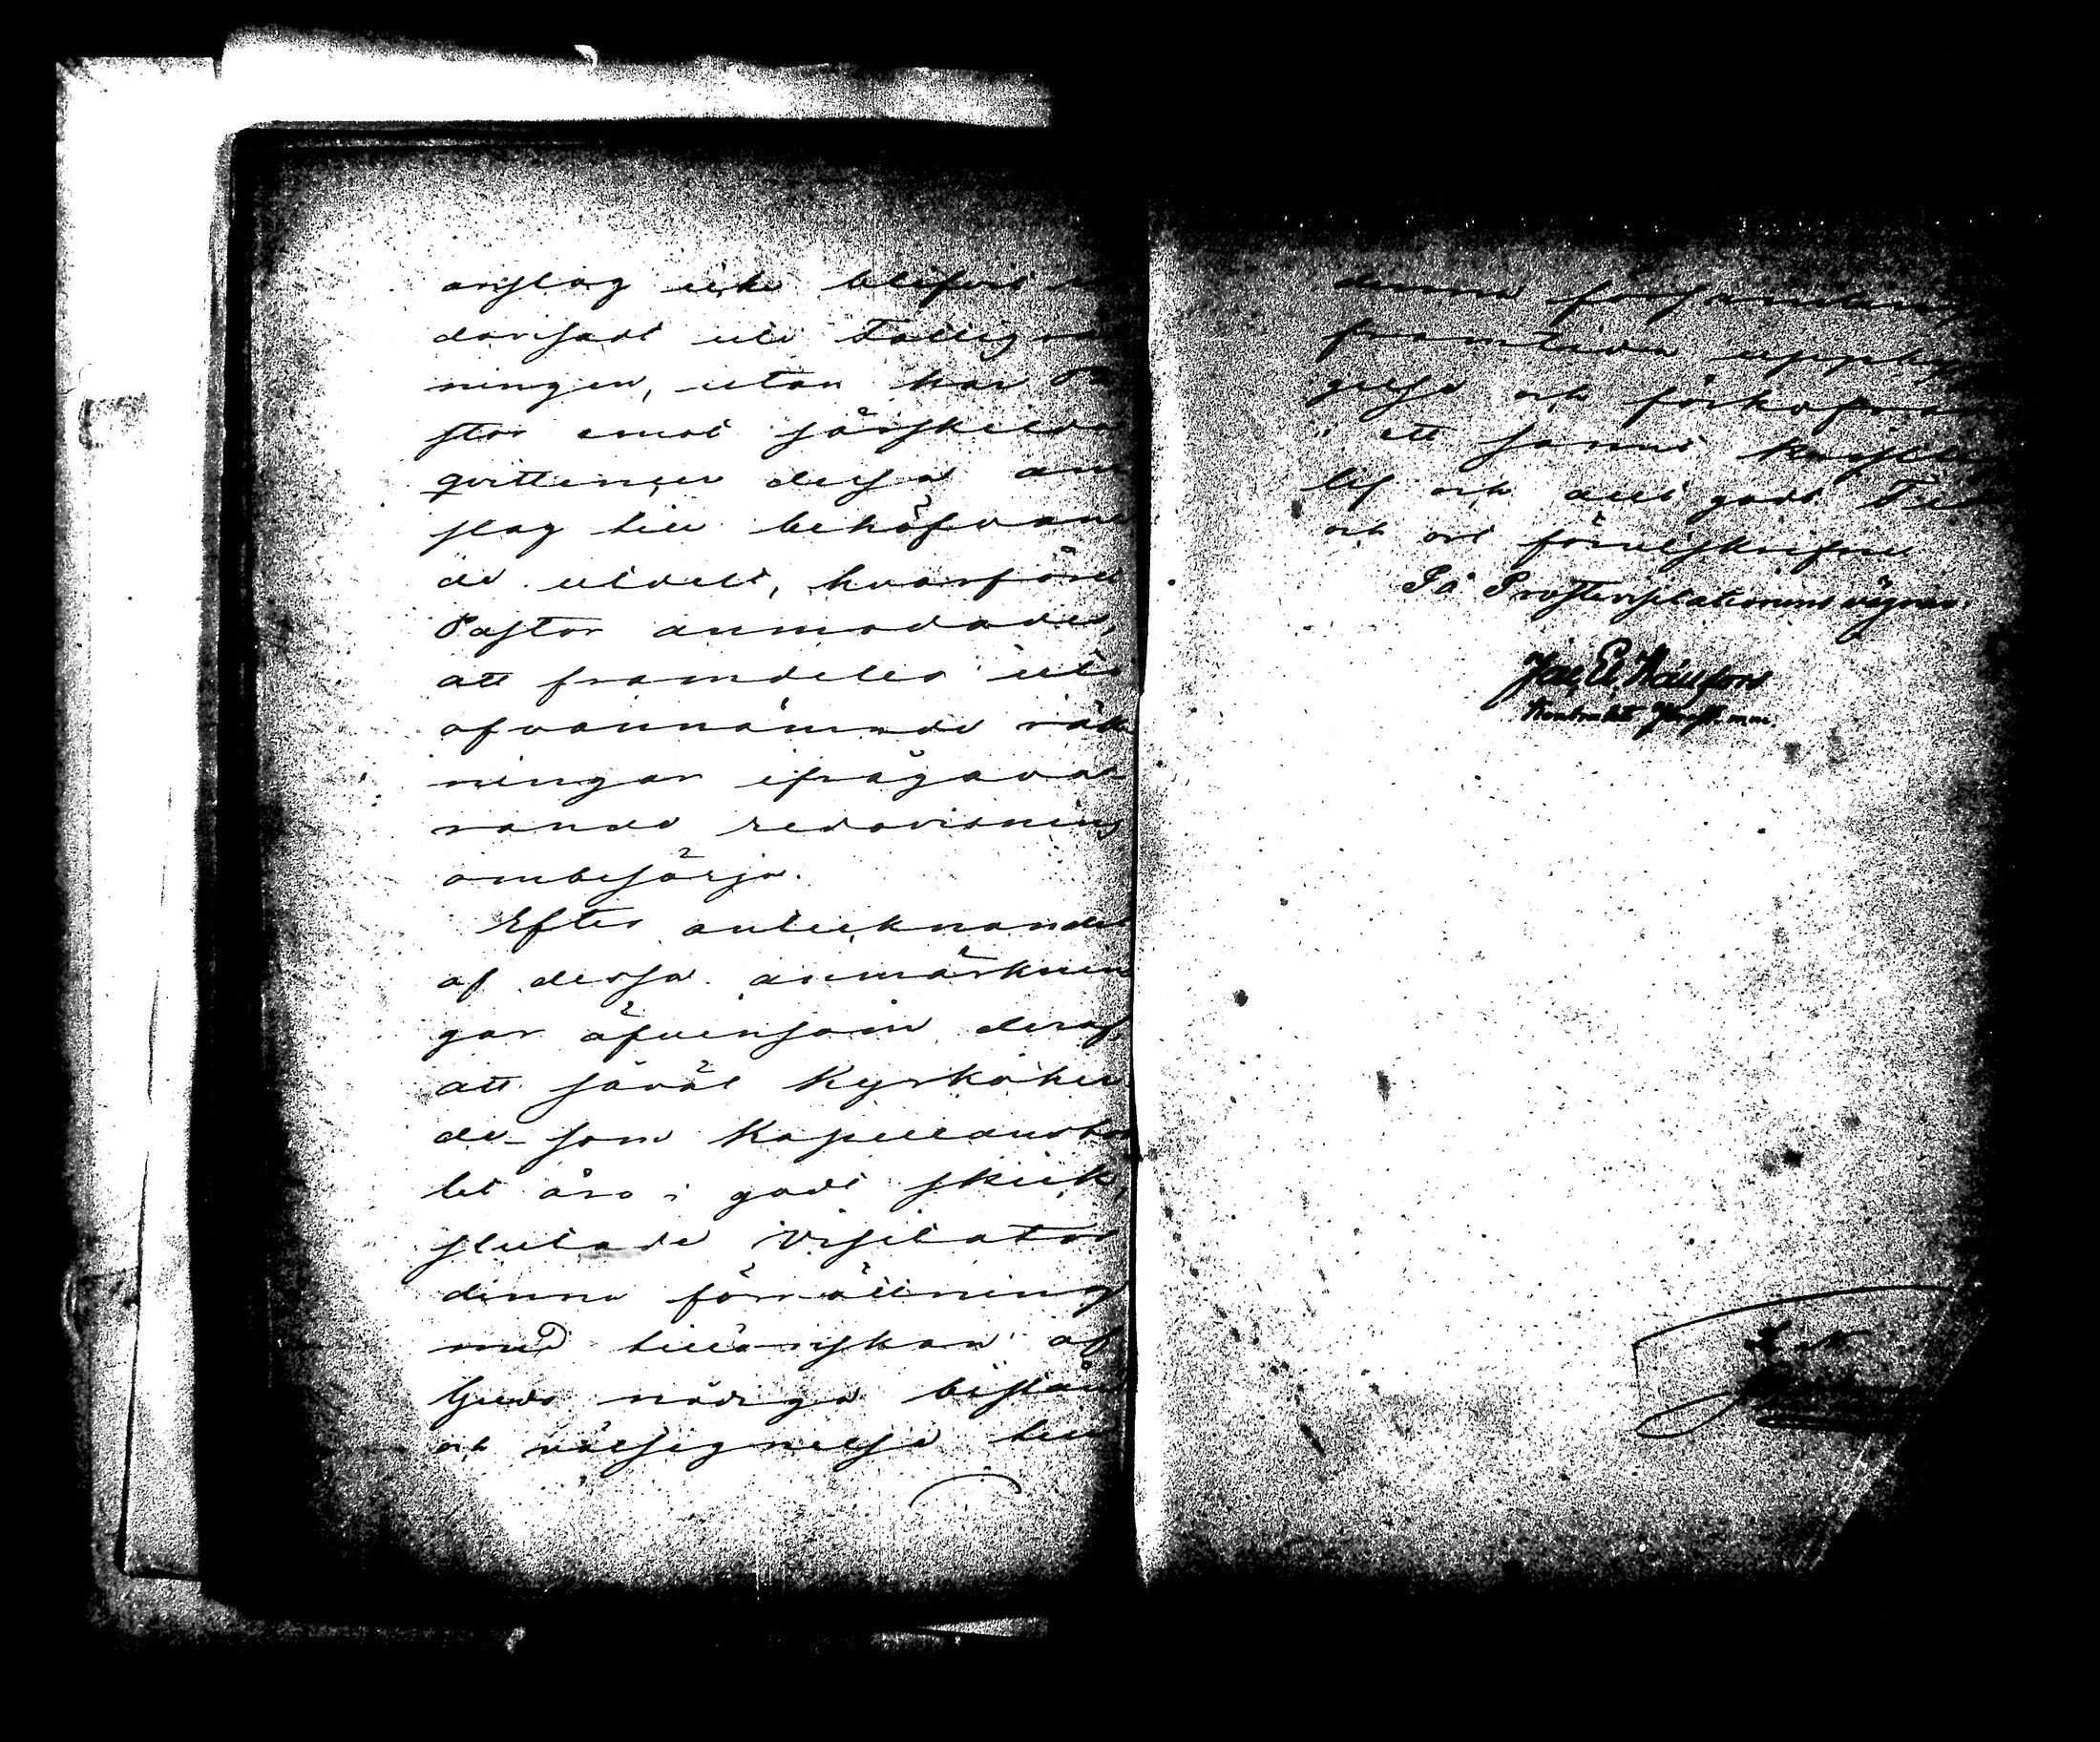 anslag icke blifvit re
dovisadt uti Fattigräk
ningen, utan har Pa
stor emot särskilda
qvittencer dessa an
slag till behöfvan
de utdelt, hvarföre
Pastor anmodades,
att framdeles uti
ofvannämnde räk
ningar ifrågava
rande redovisning
ombesörja.
Efter antecknandet
af dessa anmärknin
gar äfvensom deraf,
att såväl Kyrkoher
de- som Kapellansbo
let äro i godt skick,
slutade Visitator
denna förrättning
med tillönskan af
Guds nådiga bistånd
och välsignelse till
denna församlings
framtida uppbyg
gelse och förkofran
i ett sannt kristligt
lif och allt godt. Tid
och ort förutskrifne
På Prostvisitationens vägnar:
Kontrakts Prost. mm.